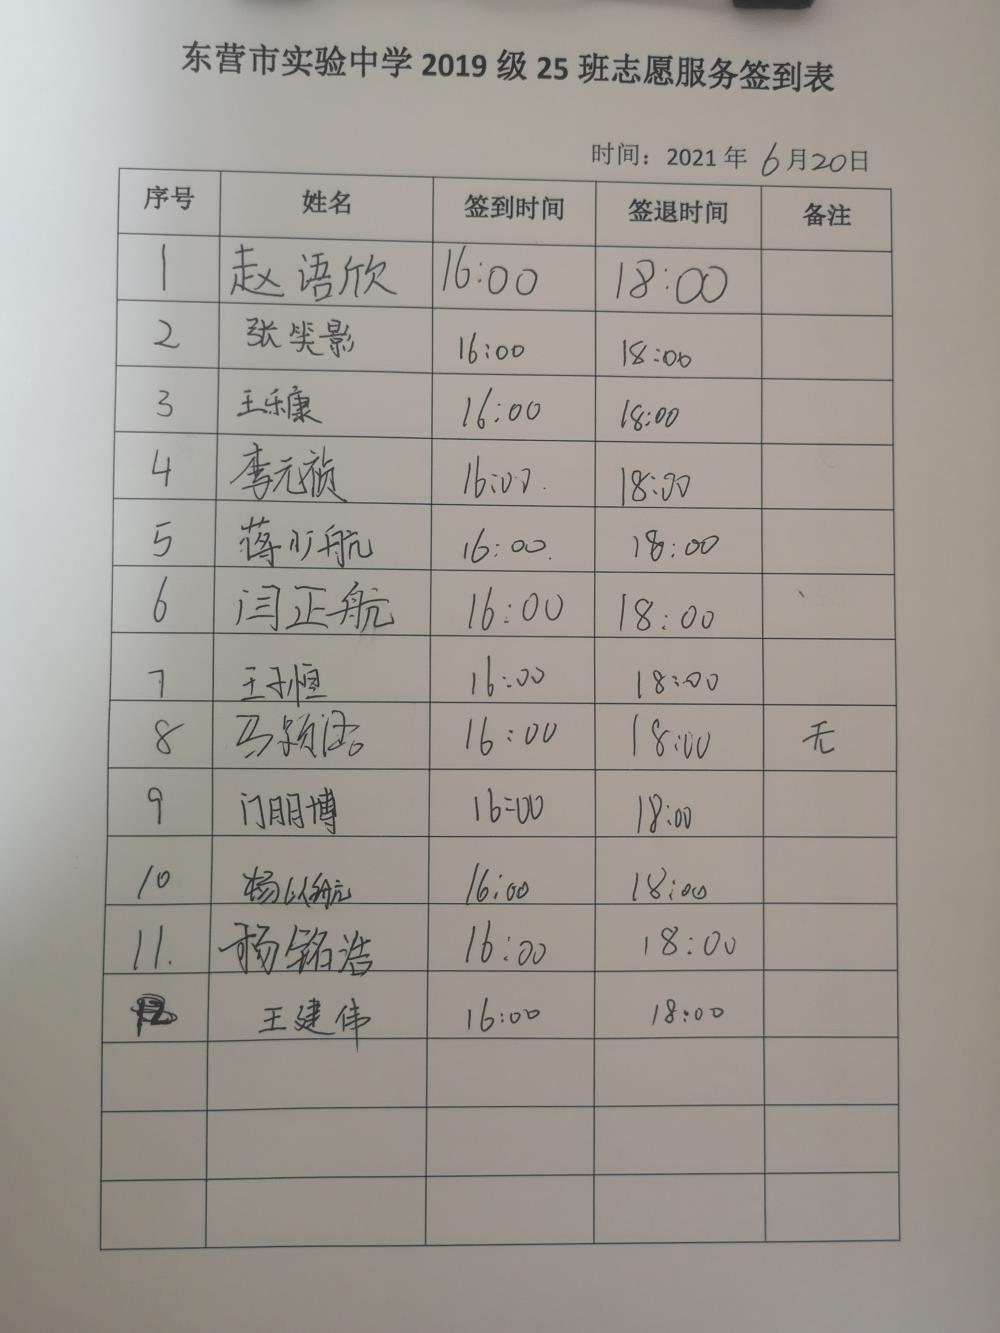 东营市实验中学 2019 级 25 班志愿服务签到表
时间：2021 年 6月20日
序号 姓名 签到时间 签退时间 备注
1 赵语欣 16:00 18:00
2 张笑影 16:00 18:00
3 王乐康 16:00 18:00
4 李元祯 16:00. 18:00
5 蒋少航 16:00. 18:00
6 闫正航 16:00 18:00
7 王子恒 16:00 18:00
8 马颖涵 16:00 18:00 无
9 门朋博 16:00 18:00
10 杨以航 16:00 18:00
11. 杨铭浩 16:00 18:00
12 王建伟 16:00 18:00